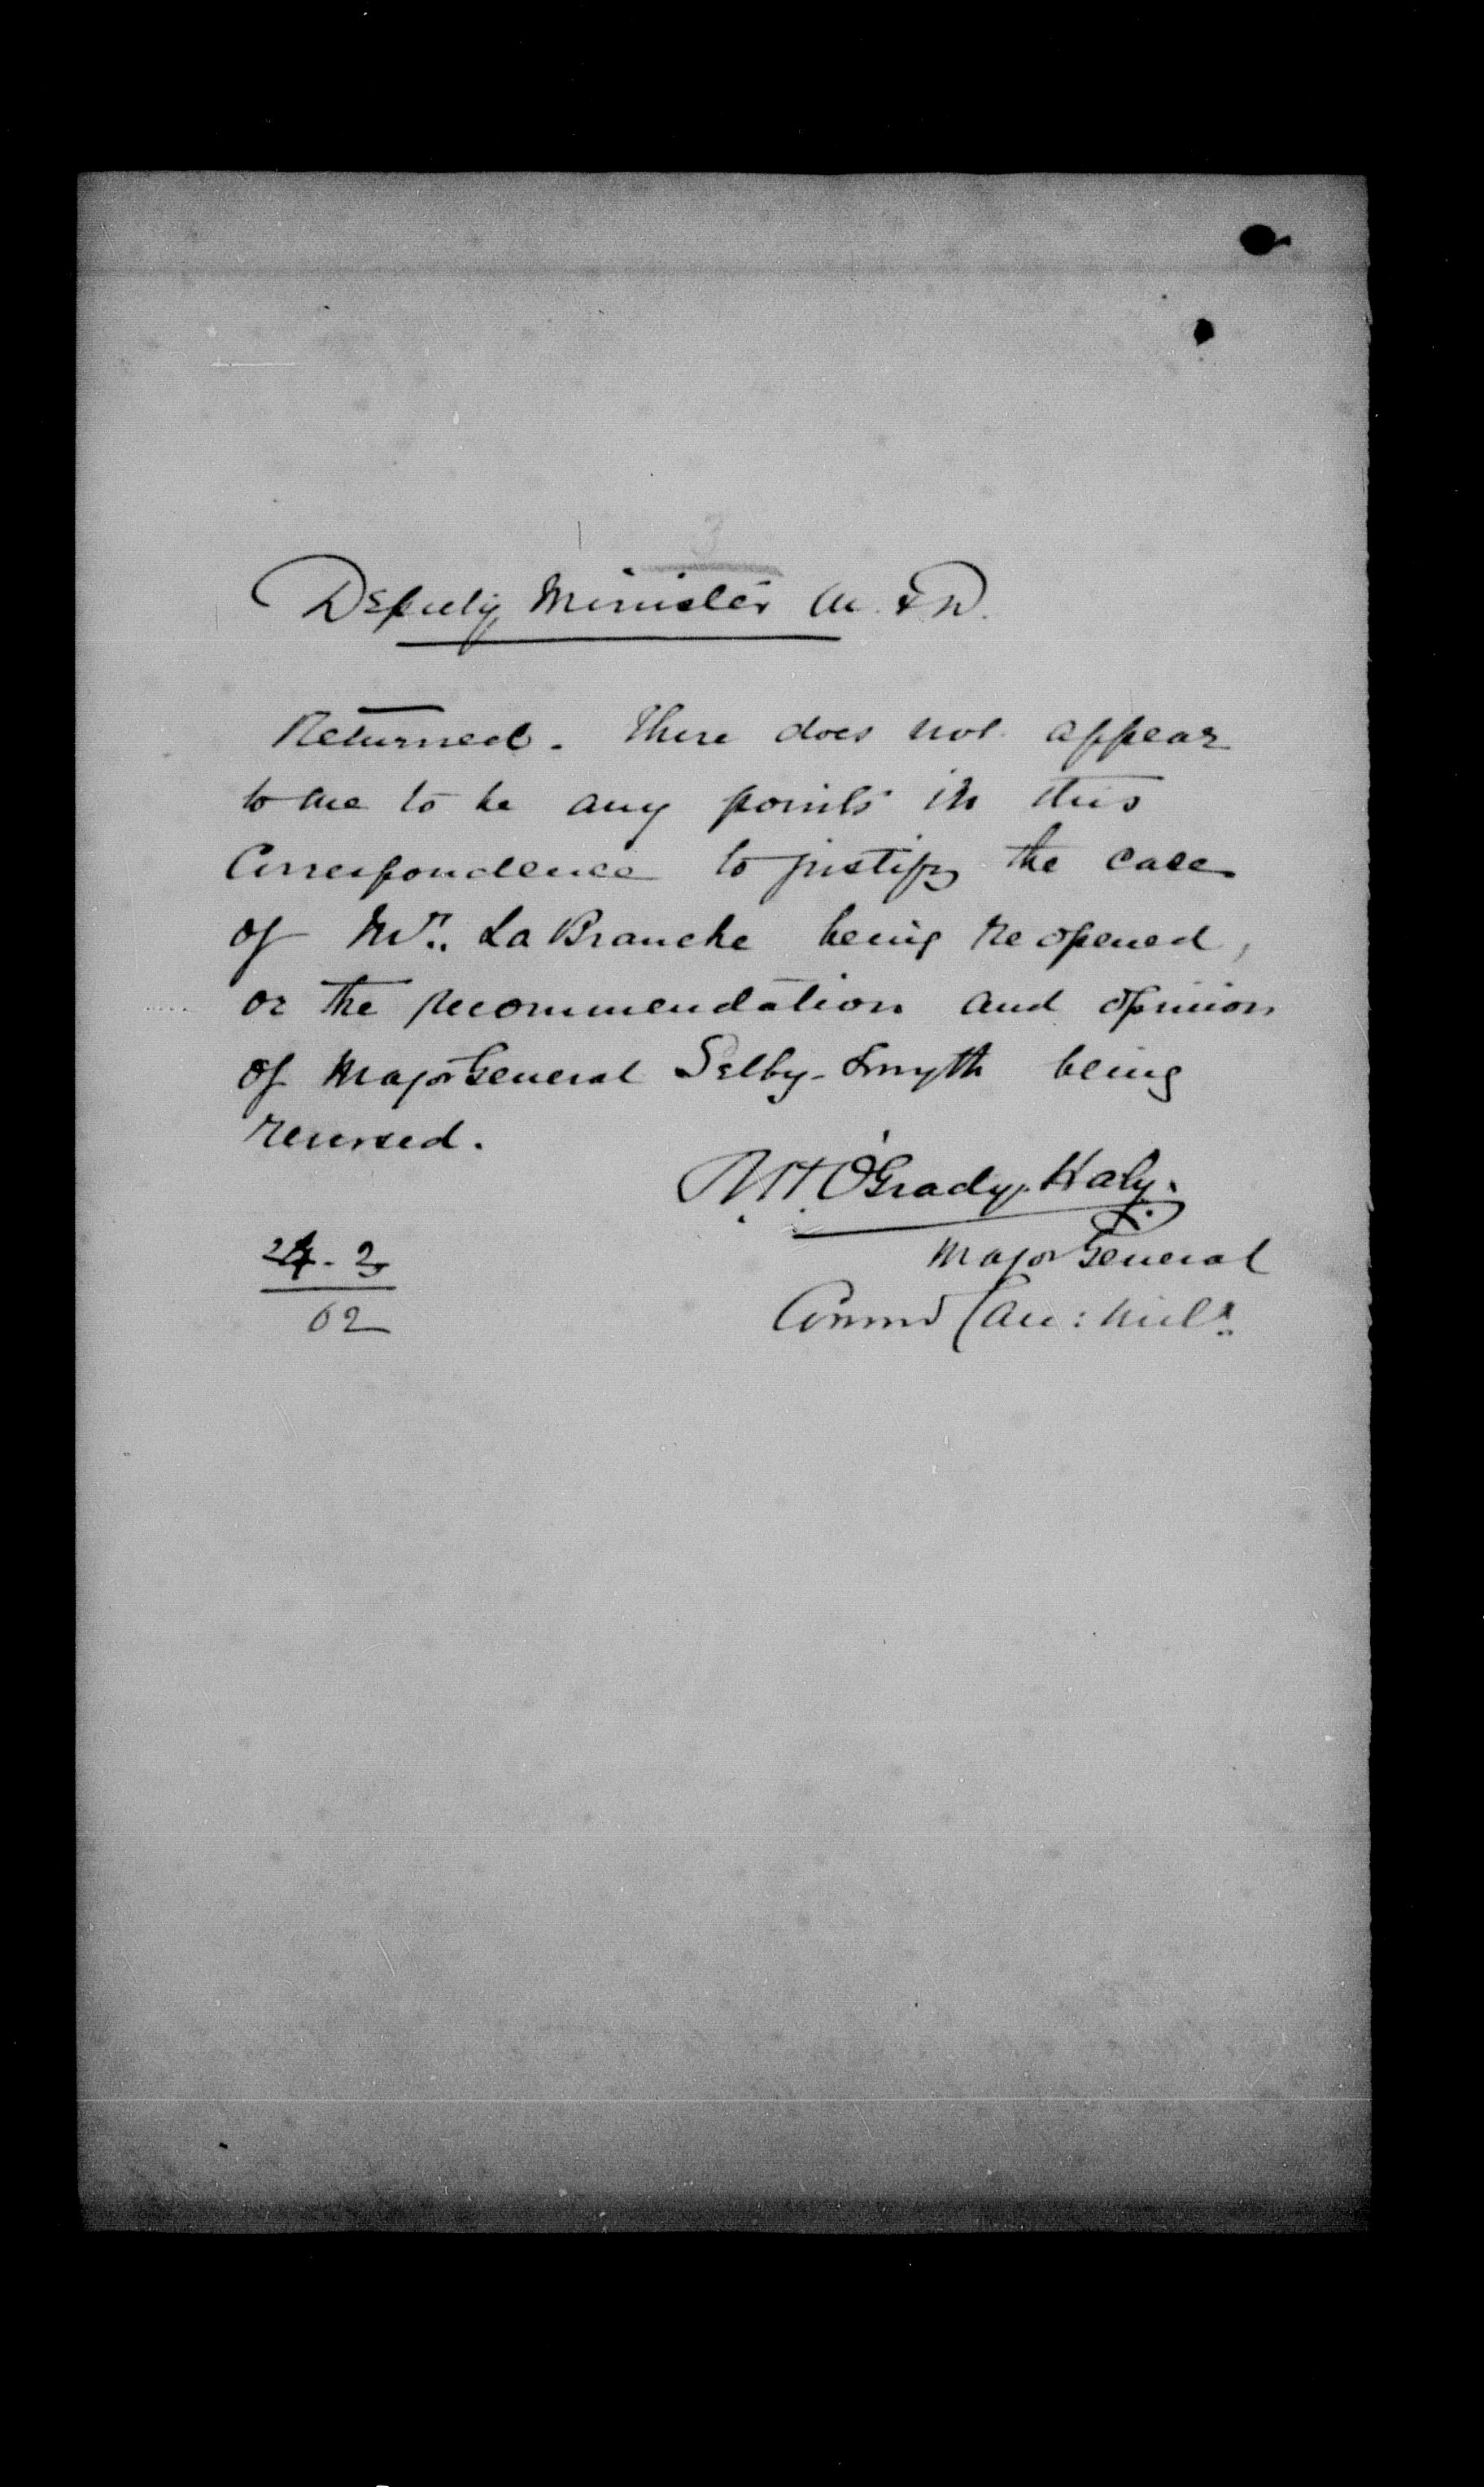 3
Deputy Minister M. & D.
Returned. There does not appear
to me to be any points in this
Correspondence to justify the case
of Mr. La Branche being re opened,
or the recommendation and opinion
of Major General Selby-Smyth being
reversed.
O'Grady Haly.
Major General
24.2
Comm'd Can: Mila.
82